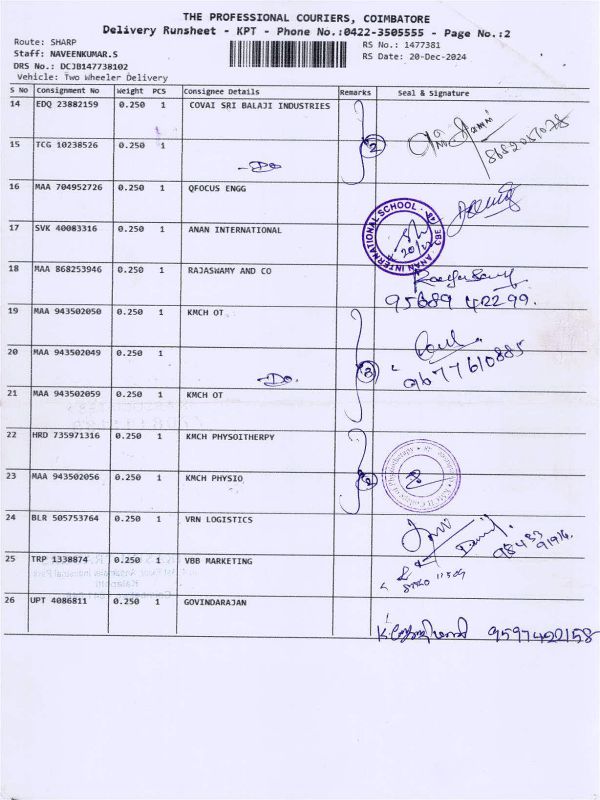 THE PROFESSIONAL COURIERS, COIMBATORE
Delivery Runsheet - KPT - Phone No.:0422-3505555 - Page No.:2
Route: SHARP
RS No.: 1477381
Staff: NAVEENKUMAR.S
RS Date: 20-Dec-2024
DRS No.: DCJB147738102
Vehicle: Two Wheeler Delivery
S No Consignment No Weight PCS Consignee Details Remarks Seal & Signature
14 EDQ 23882159 0.250 1 COVAI SRI BALAJI INDUSTRIES
15 TCG 10238526 0.250 1 2
-Do
16 MAA 704952726 0.250 1 QFOCUS ENGG
17 SVK 40083316 0.250 1 ANAN INTERNATIONAL
ANAN INTERNATIONAL SCHOOL CBE
18 MAA 868253946 0.250 1 RAJASWAMY AND CO
95689 42299.
19 MAA 943502050 0.250 1 KMCH OT
20 MAA 943502049 0.250 1
9677610885
-Do. 3
21 MAA 943502059 0.250 1 KMCH OT
22 HRD 735971316 0.250 1 KMCH PHYSOITHERPY
23 MAA 943502056 0.250 1 KMCH PHYSIO 2
24 BLR 505753764 0.250 1 VRN LOGISTICS
25 TRP 1338874 0.250 1 VBB MARKETING
26 UPT 4086811 0.250 1 GOVINDARAJAN
9597422158